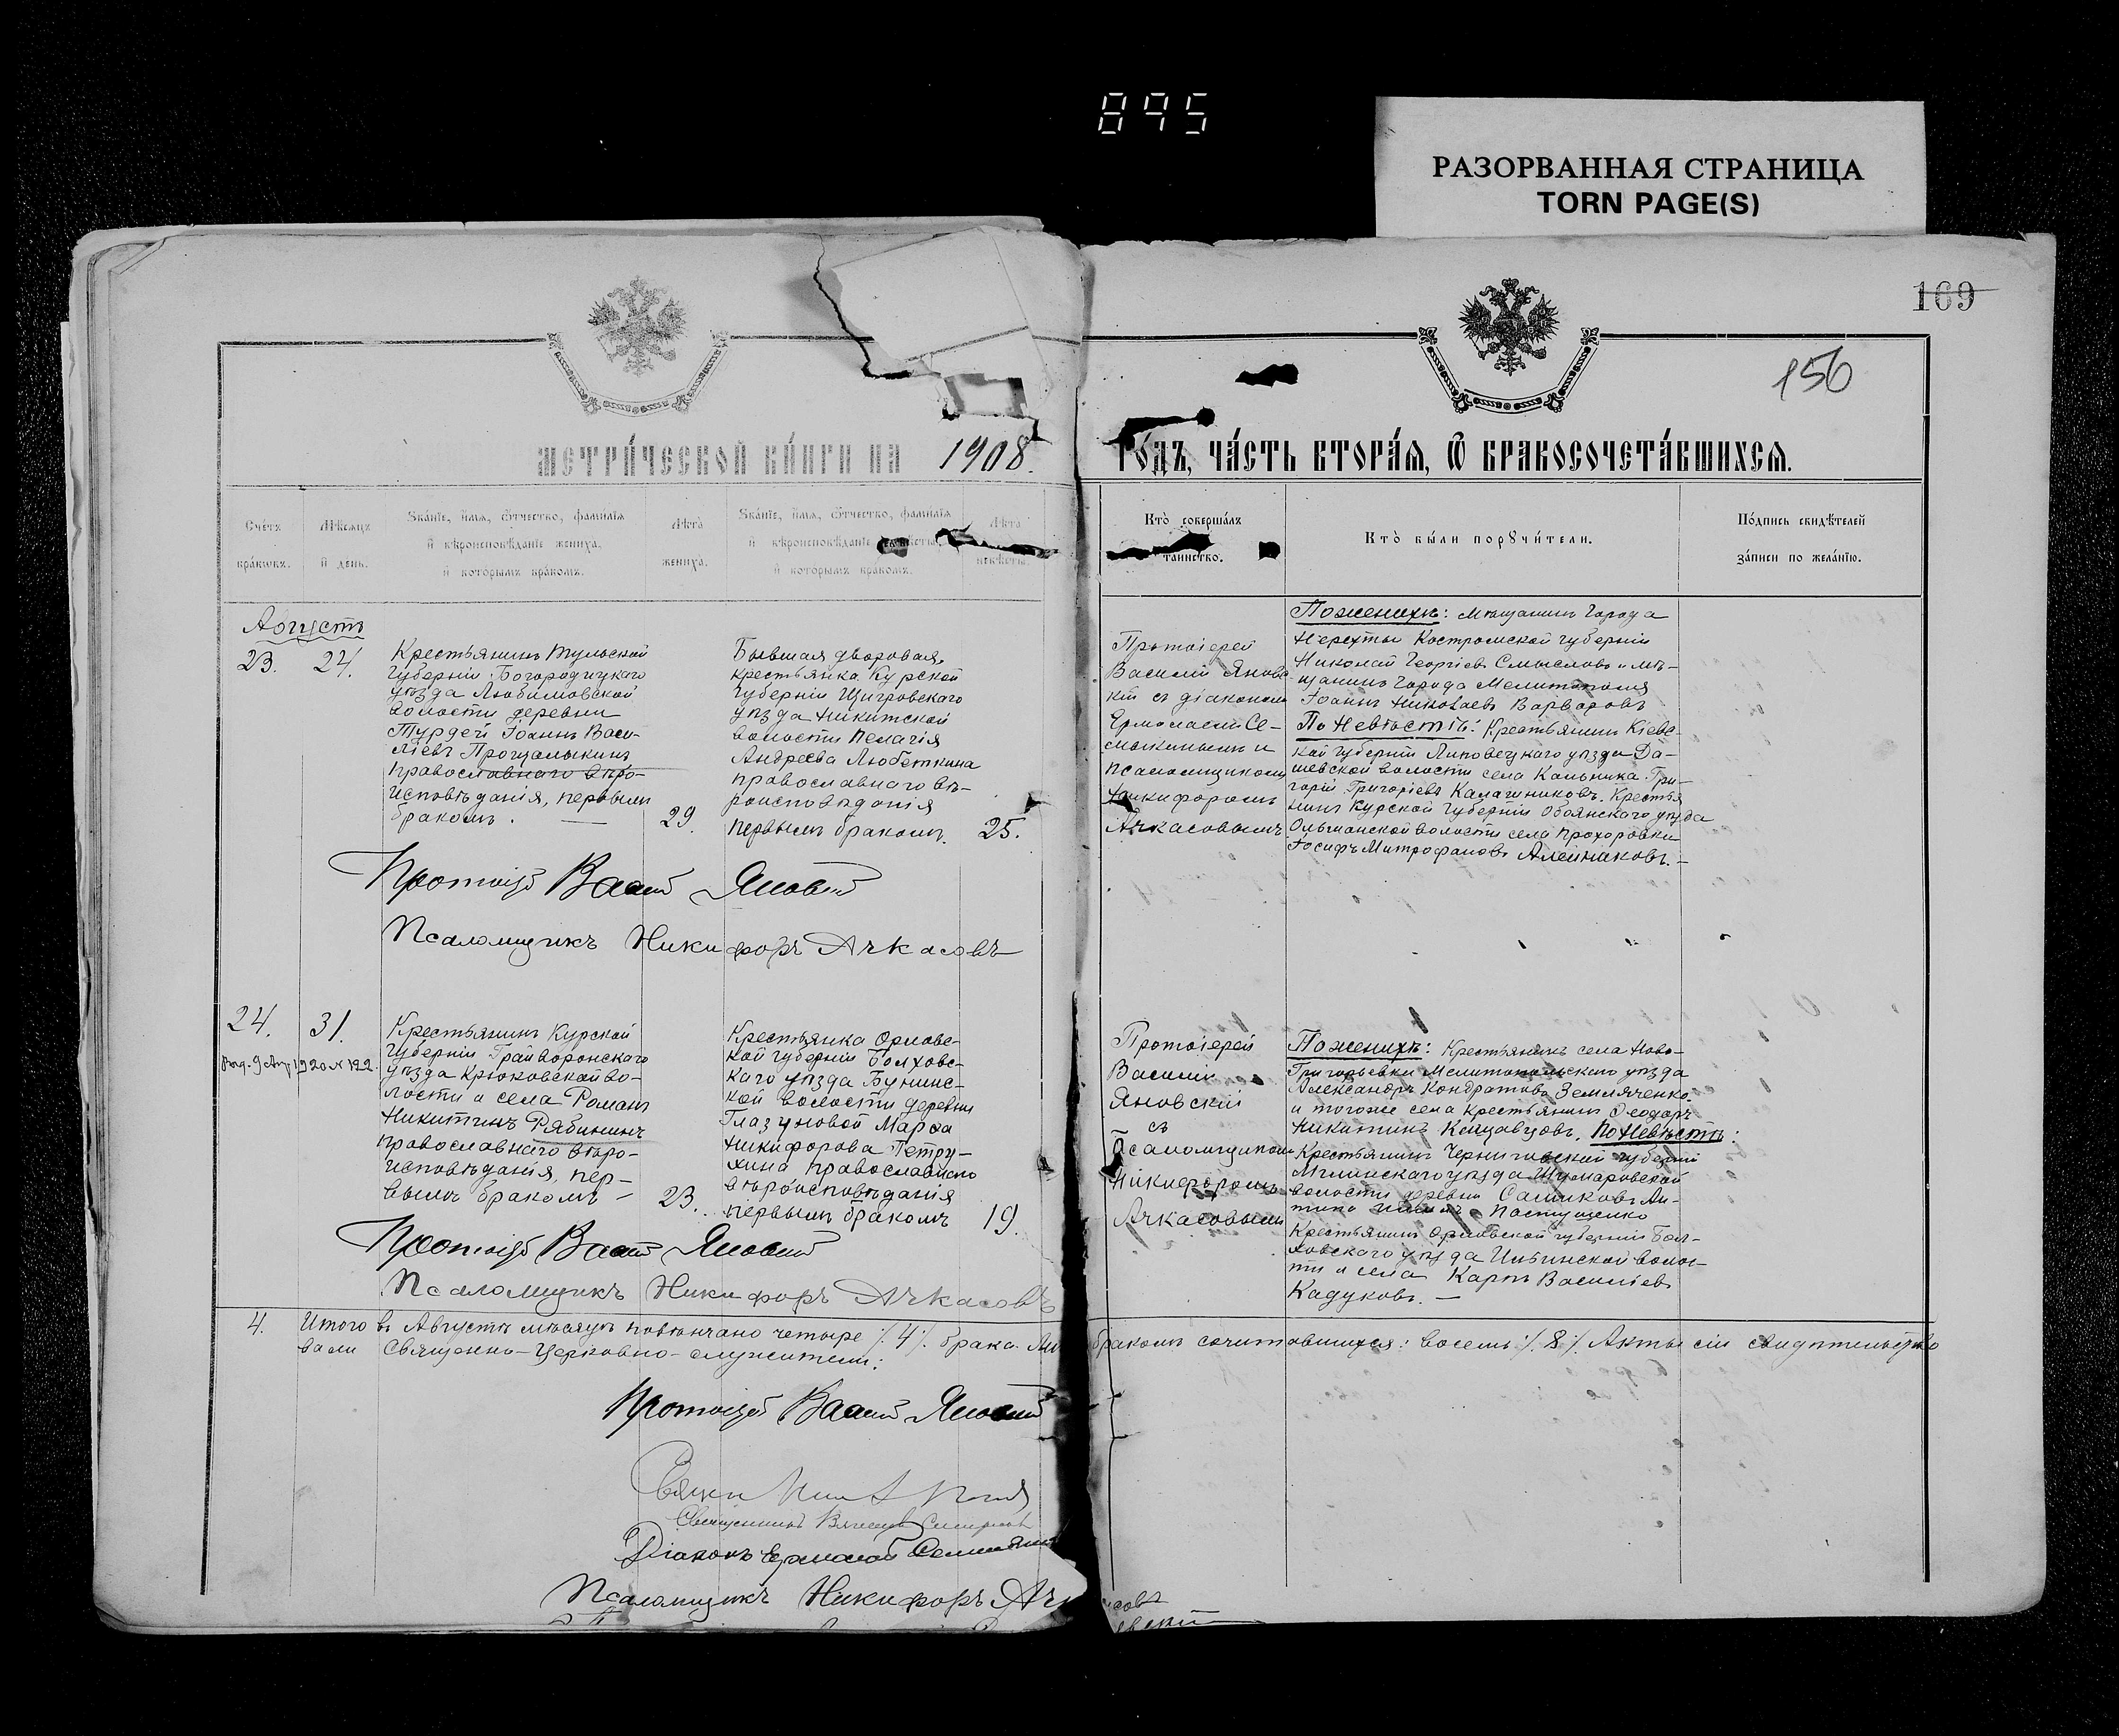 895
РАЗОРВАННАЯ СТРАНИЦА
TORN PAGE(S)
169
156
МЕТРИ́ЧЕСКОЙ КНИ́ГИ НА 1908.
ГО́ДЪ, ЧА́СТЬ ВТОРА́Я, Ѿ БРАКОСОЧЕТА́ВШИХСЯ.
Сче́тъ бра́ковъ.
Мѣ́сяцъ и҆ де́нь.
Зва́нїе, и҆́мя, ѻ҆́тчество, фами́лїя
и҆ вѣроисповѣ́данїе жениха̀,
и҆ кото́рымъ бра́комъ.
Лѣ́та жениха̀.
Зва́нїе, и҆́мя, ѻ҆́тчество, фами́лїя
и҆ вѣроисповѣ́данїе невѣ́сты,
и҆ кото́рымъ бра́комъ.
Лѣ́та невѣ́сты.
Кто̀ соверша́лъ
та́инство.
Кто̀ бы́ли порꙋчи́тели.
По́дпись свидѣ́телей
за́писи по жела́нїю.
Августъ
23. 24.
Крестьянинъ Тульской
губерніи Богородицкаго
уѣзда Любимовской
волости деревни
Турдей Іоаннъ Васи-
ліевъ
православнаго вѣро-
исповѣданія, первымъ
бракомъ. — 29.
Бывшая дворовая,
крестьянка Курской
губерніи Щигровскаго
уѣзда Никитской
волости Пелагія
Андреева Любеткина
православнаго вѣ-
роисповѣданія
первымъ бракомъ. 25.
Протоіерей
Василій Яновс-
кій съ діакономъ
Ермолаемъ Се-
и
псаломщикомъ
Никифоромъ
Ачкасовымъ
По женихѣ: мѣщанинъ города
Нерехты Костромской губерніи
Николай Георгіевъ Смысловъ и мѣ-
щанинъ города Мелитополя
Іоаннъ Николаевъ Варваровъ
По Невѣстѣ: Крестьянинъ Кіевс-
кой губерніи Липовецкаго уѣзда Да-
шевской волости села Кальника Гри-
горій Григоріевъ Калачниковъ. Крестья-
нинъ Курской губерніи Обоянскаго уѣзда
Ольшанской волости села Прохоровки
Іосифъ Митрофановъ Алейниковъ. —
Протоіерей Василій Яновскій
Псаломщикъ Никифоръ Ачкасовъ
24. 31.
1920 № 122.
Крестьянинъ Курской
губерніи Грайворонскаго
уѣзда Крюковской во-
лости и села Романъ
Никитинъ Рябининъ
православнаго вѣро-
исповѣданія, пер-
вымъ бракомъ — 23.
Крестьянка Орловс-
кой губерніи Болховс-
каго уѣзда Бунинс-
кой волости деревни
Глазуновой Марѳа
Никифорова Петру-
хина православнаго
вѣроисповѣданія
первымъ бракомъ 19.
Протоіерей
Василій
Яновскій
съ
Псаломщикомъ
Никифоромъ
Ачкасовымъ
По женихѣ: Крестьянинъ села Ново-
Григорьевки Мелитопольскаго уѣзда
Александръ Кондратовъ Земляченко
и тогоже села крестьянинъ Ѳеодоръ
Никитинъ. По Невѣстѣ:
Крестьянинъ Черниговской губерніи
Мглинскаго уѣзда Шумаровской
волости деревни Ан-
Пастушенко
Крестьянинъ Орловской губерніи Бол-
ховскаго уѣзда Ильинской волос-
ти и села Карпъ Василіевъ
Кадуковъ. —
Протоіерей Василій Яновскій
Псаломщикъ Никифоръ Ачкасовъ
4. Итого въ Августѣ мѣсяцѣ повѣнчано четыре ./. 4 ./. брака. бракомъ сочитавшихся: восемь ./. 8 ./. Акты сіи свидѣтельство-
вали Священно-Церковно-служители:
Протоіерей Василій Яновскій
Священникъ
Діаконъ Ермолай
Псаломщикъ Никифоръ Ачкасовъ